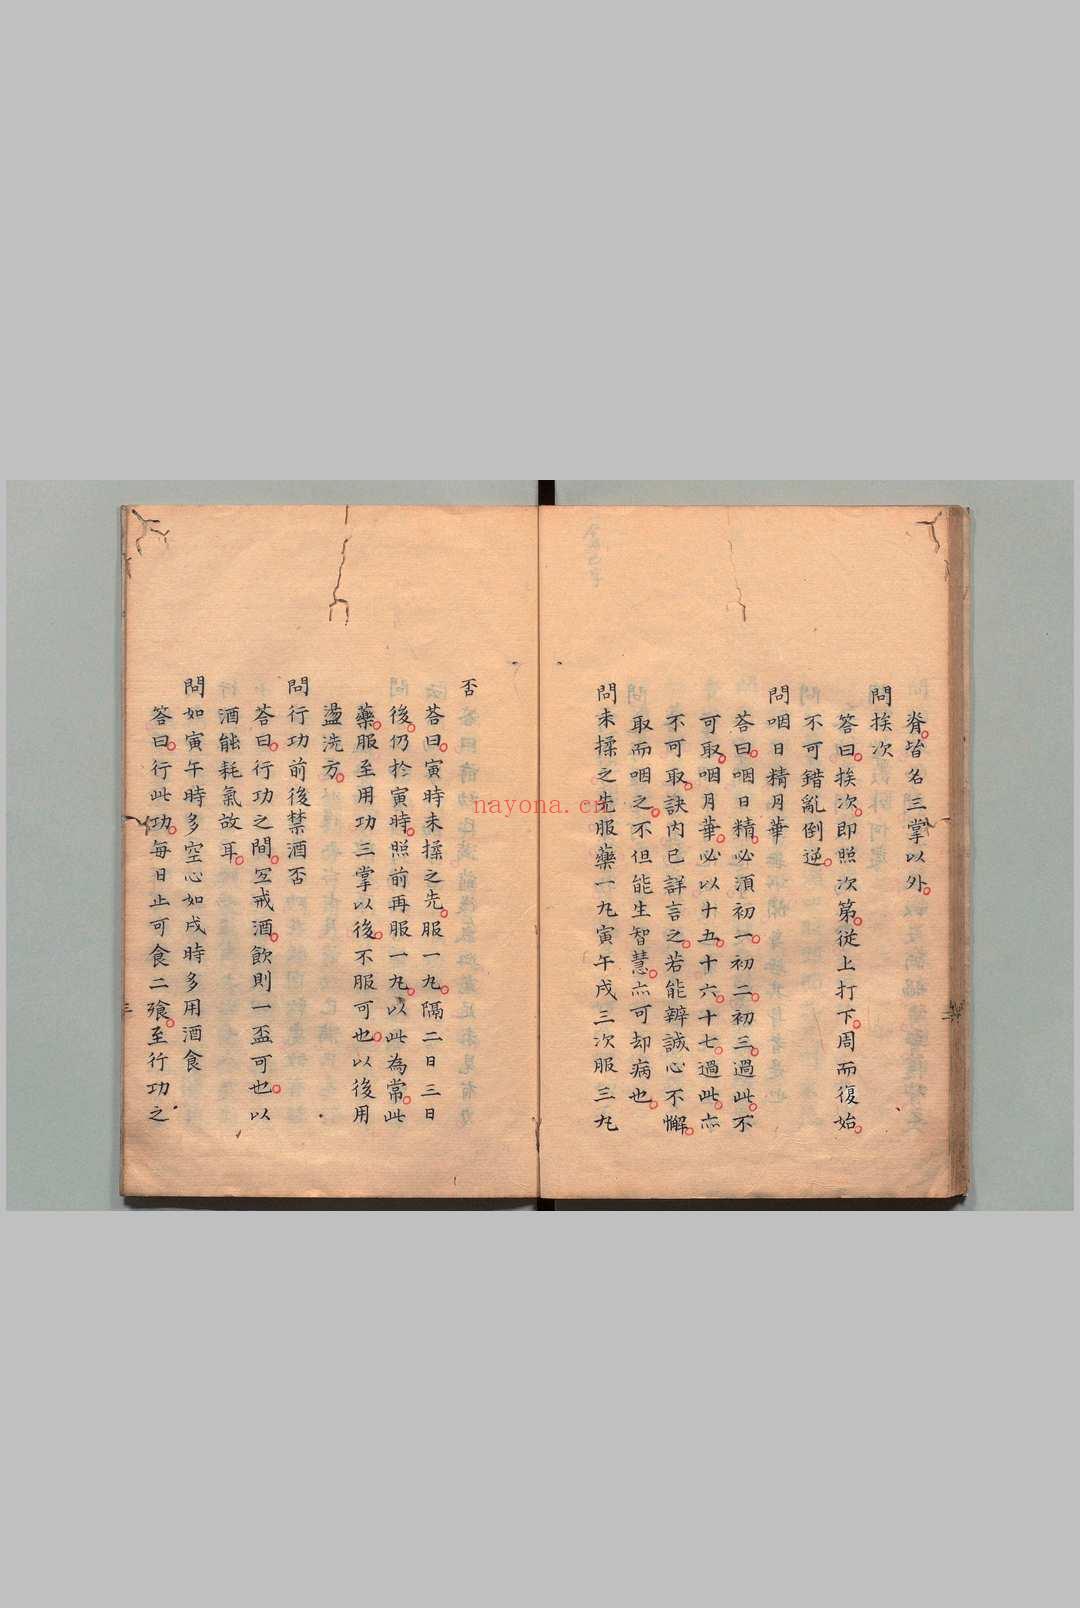 脊皆名三掌以外
問挨次
答曰挨次即照次第從上打下周而復始
不可錯亂倒逆
問咽日精月華
答曰咽日精必須初一初二初三過此不
可取咽月華必以十五十六十七過此亦
不可取訣内已詳言之若能辦誠心不懈
取而咽之不但能生智慧亦可却病也
問未揉之先服藥一丸寅午戌三次服三丸
否
荅曰寅時未揉之先服一丸隔二日三日
後仍於寅時照前再服一丸以此為常此
藥服至用功三掌以後不服可也以後用
盪洗方
問行功前後禁酒否
荅曰行功之間宜戒酒飲則一盃可也以
酒能耗氣故耳
問如寅午時多空心如戌時多用酒食
答曰行此功每日止可食二飱至行功之
nayona.cn